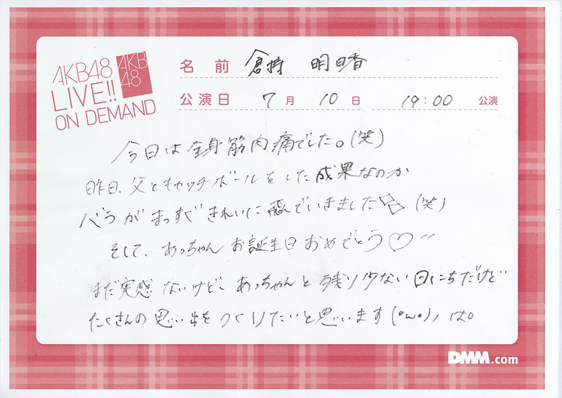 AKB48
LIVE!!
ON DEMAND
AKB
48
名前 倉持 明日香
公演日 7月 10日 19:00 公演
今日は全身筋肉痛でした。(笑)
昨日、父とキャッチボールをした成果なのか
バラがまっすぐきれいに飛んでいきました (笑)
そして、あっちゃんお誕生日おめでとう♡
まだ実感ないけど、あっちゃんと残り少ない日にちだけど
たくさんの思い出をつくりたいと思います(・ω・)ノ は。
DMM.com